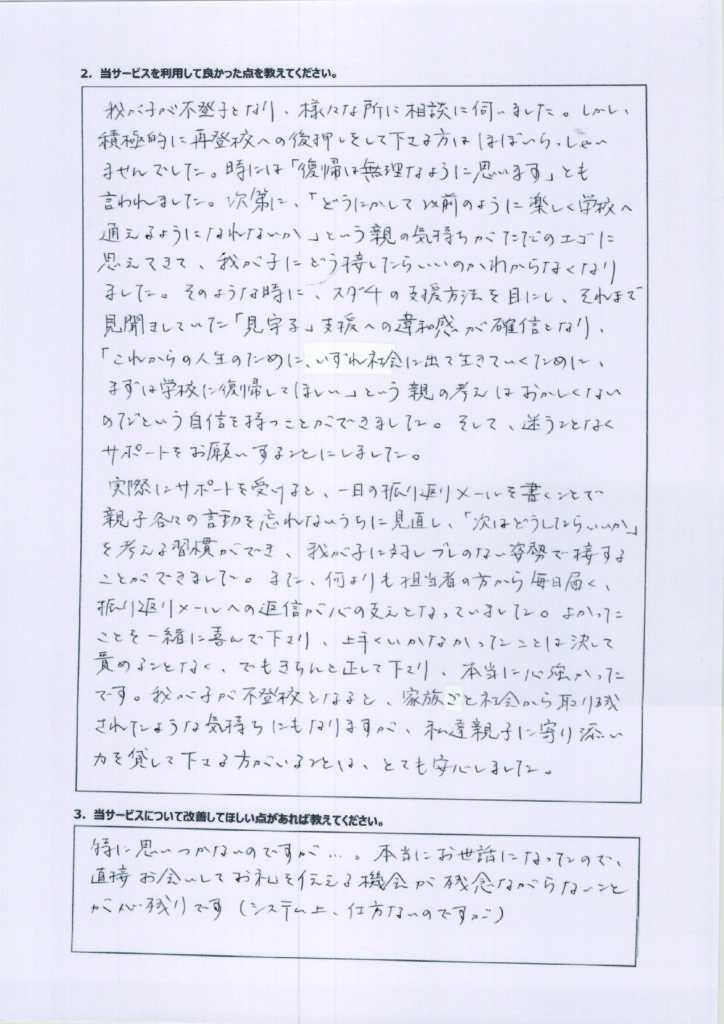 2. 当サービスを利用して良かった点を教えてください。
我が子が不登校となり、様々な所に相談に伺いました。しかし、
積極的に再登校への後押しをして下さる方はほぼいらっしゃい
ませんでした。時には「復帰は無理なように思います」とも
言われました。次第に、「どうにかして以前のように楽しく学校へ
通えるようになれないか」という親の気持ちがただのエゴに
思えてきて、我が子にどう接したらいいのかわからなくなり
ました。そのような時に、スダチの支援方法を目にし、それまで
見聞きしていた「見守る」支援への違和感が確信となり、
「これからの人生のために、いずれ社会に出て生きていくために、
まずは学校に復帰してほしい」という親の考えはおかしくない
のだという自信を持つことができました。そして、迷うことなく
サポートをお願いすることにしました。
実際にサポートを受けると、一日の振り返りメールを書くことで
親子各々の言動を忘れないうちに見直し、「次はどうしたらいいか」
を考える習慣ができ、我が子に対しブレのない姿勢で接する
ことができました。また、何よりも担当者の方から毎日届く、
振り返りメールへの返信が心の支えとなっていました。よかった
ことを一緒に喜んで下さり、上手くいかなかったことは決して
責めることなく、でもきちんと正して下さり、本当に心強かった
です。我が子が不登校となると、家族ごと社会から取り残
されたような気持ちにもなりますが、私達親子に寄り添い
力を貸して下さる方がいることは、とても安心しました。
3. 当サービスについて改善してほしい点があれば教えてください。
特に思いつかないのですが…。本当にお世話になったので、
直接お会いしてお礼を伝える機会が残念ながらないこと
が心残りです(システム上、仕方ないのですが)